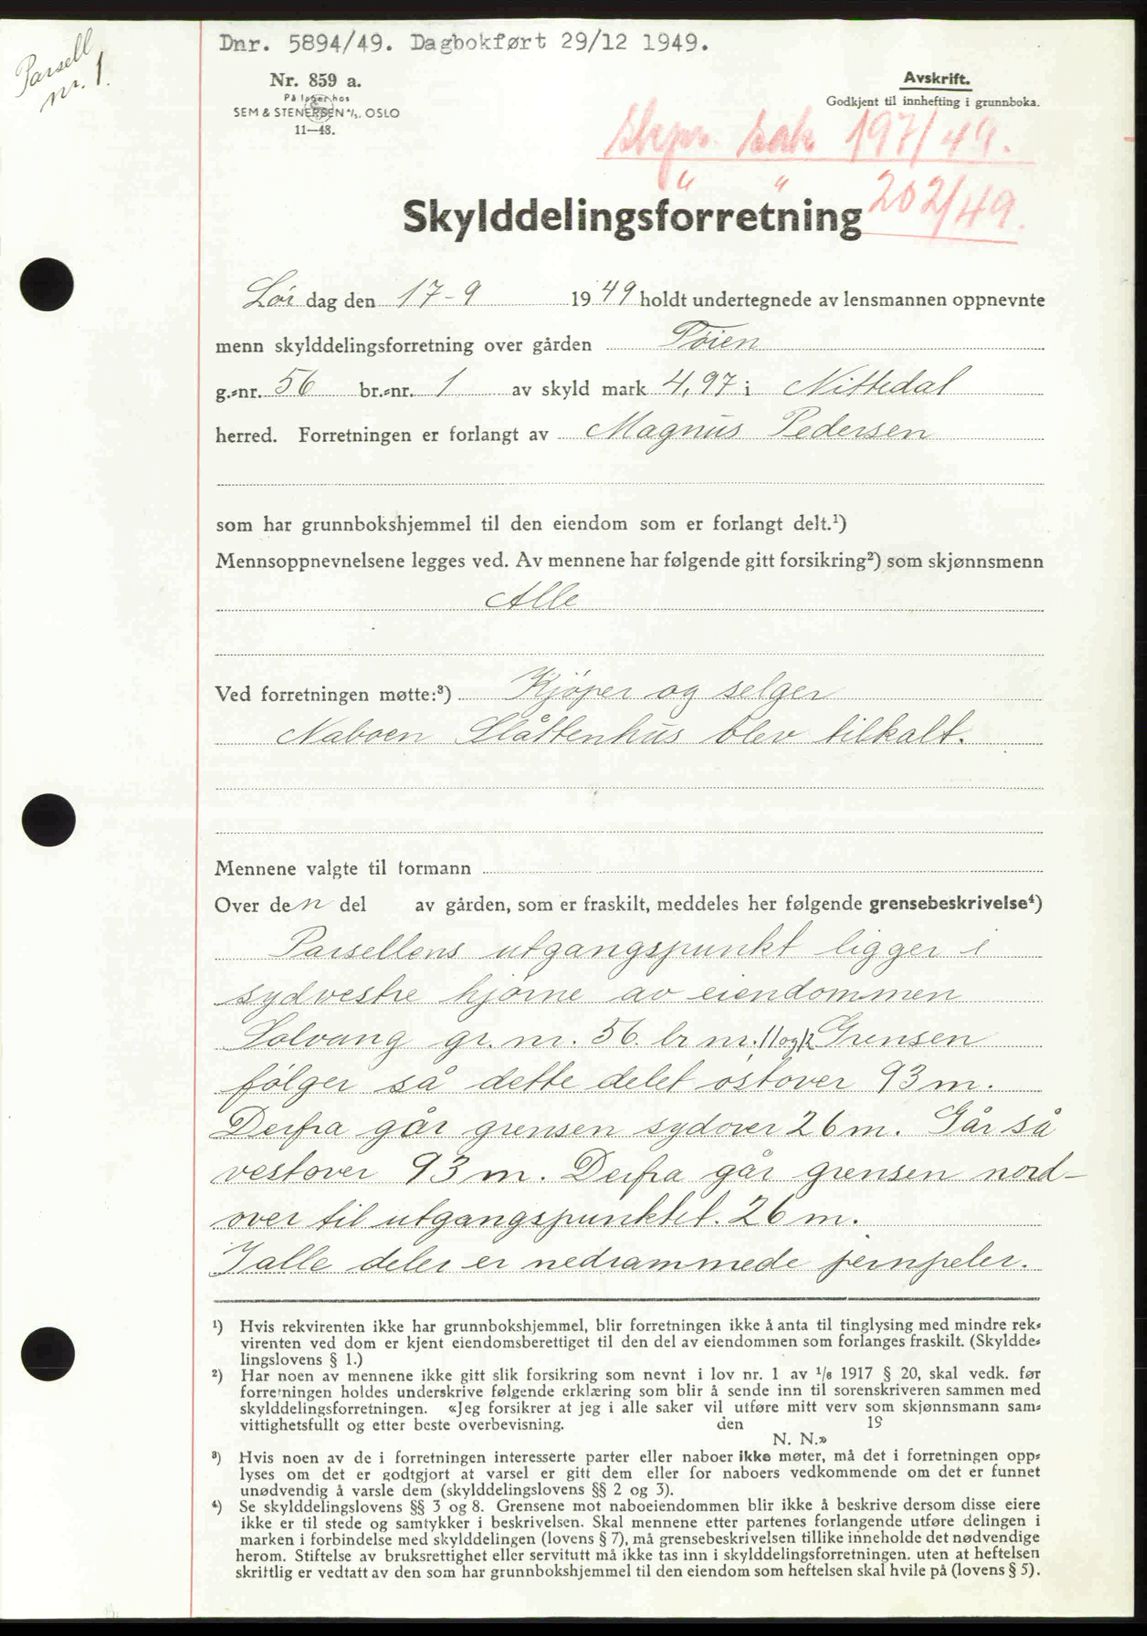 Dnr. 5894/49. Dagbokført 29/12 1949.
Parsell
nr. 1.
Nr. 859 a.
På lager hos
SEM & STENERSEN A/S. OSLO
11—48.
Avskrift.
Godkjent til innhefting i grunnboka.
Skjpr. sak 197/49.
" " 202/49.
Skylddelingsforretning
Lør dag den 17-9 1949 holdt undertegnede av lensmannen oppnevnte
menn skylddelingsforretning over gården Tøien
g.-nr. 56 br.-nr. 1 av skyld mark 4,97 i Nittedal
herred. Forretningen er forlangt av Magnus Pedersen
som har grunnbokshjemmel til den eiendom som er forlangt delt.¹)
Mennsoppnevnelsene legges ved. Av mennene har følgende gitt forsikring²) som skjønnsmenn
Alle
Ved forretningen møtte:³) Kjøper og selger
Naboen Slåttenhus blev tilkalt.
Mennene valgte til formann
Over den del av gården, som er fraskilt, meddeles her følgende grensebeskrivelse⁴)
Parsellens utgangspunkt ligger i
sydvestre hjørne av eiendommen
Solvang gr. nr. 56. br nr. 11 og 12 Grensen
følger så dette delet østover 93 m.
Derfra går grensen sydover 26 m. Går så
vestover 93 m. Derfra går grensen nord-
over til utgangspunktet. 26 m.
I alle deler er nedrammede jernpeler.
¹) Hvis rekvirenten ikke har grunnbokshjemmel, blir forretningen ikke å anta til tinglysing med mindre rek-
virenten ved dom er kjent eiendomsberettiget til den del av eiendommen som forlanges fraskilt. (Skyldde-
lingslovens § 1.)
²) Har noen av mennene ikke gitt slik forsikring som nevnt i lov nr. 1 av ¹/₆ 1917 § 20, skal vedk. før
forretningen holdes underskrive følgende erklæring som blir å sende inn til sorenskriveren sammen med
skylddelingsforretningen. «Jeg forsikrer at jeg i alle saker vil utføre mitt verv som skjønnsmann sam-
vittighetsfullt og etter beste overbevisning. den 19
N. N.»
³) Hvis noen av de i forretningen interesserte parter eller naboer ikke møter, må det i forretningen opp-
lyses om det er godtgjort at varsel er gitt dem eller for naboers vedkommende om det er funnet
unødvendig å varsle dem (skylddelingslovens §§ 2 og 3).
⁴) Se skylddelingslovens §§ 3 og 8. Grensene mot naboeiendommen blir ikke å beskrive dersom disse eiere
ikke er til stede og samtykker i beskrivelsen. Skal mennene etter partenes forlangende utføre delingen i
marken i forbindelse med skylddelingen (lovens § 7), må grensebeskrivelsen tillike inneholde det nødvendige
herom. Stiftelse av bruksrettighet eller servitutt må ikke tas inn i skylddelingsforretningen. uten at heftelsen
skriftlig er vedtatt av den som har grunnbokshjemmel til den eiendom som heftelsen skal hvile på (lovens § 5).